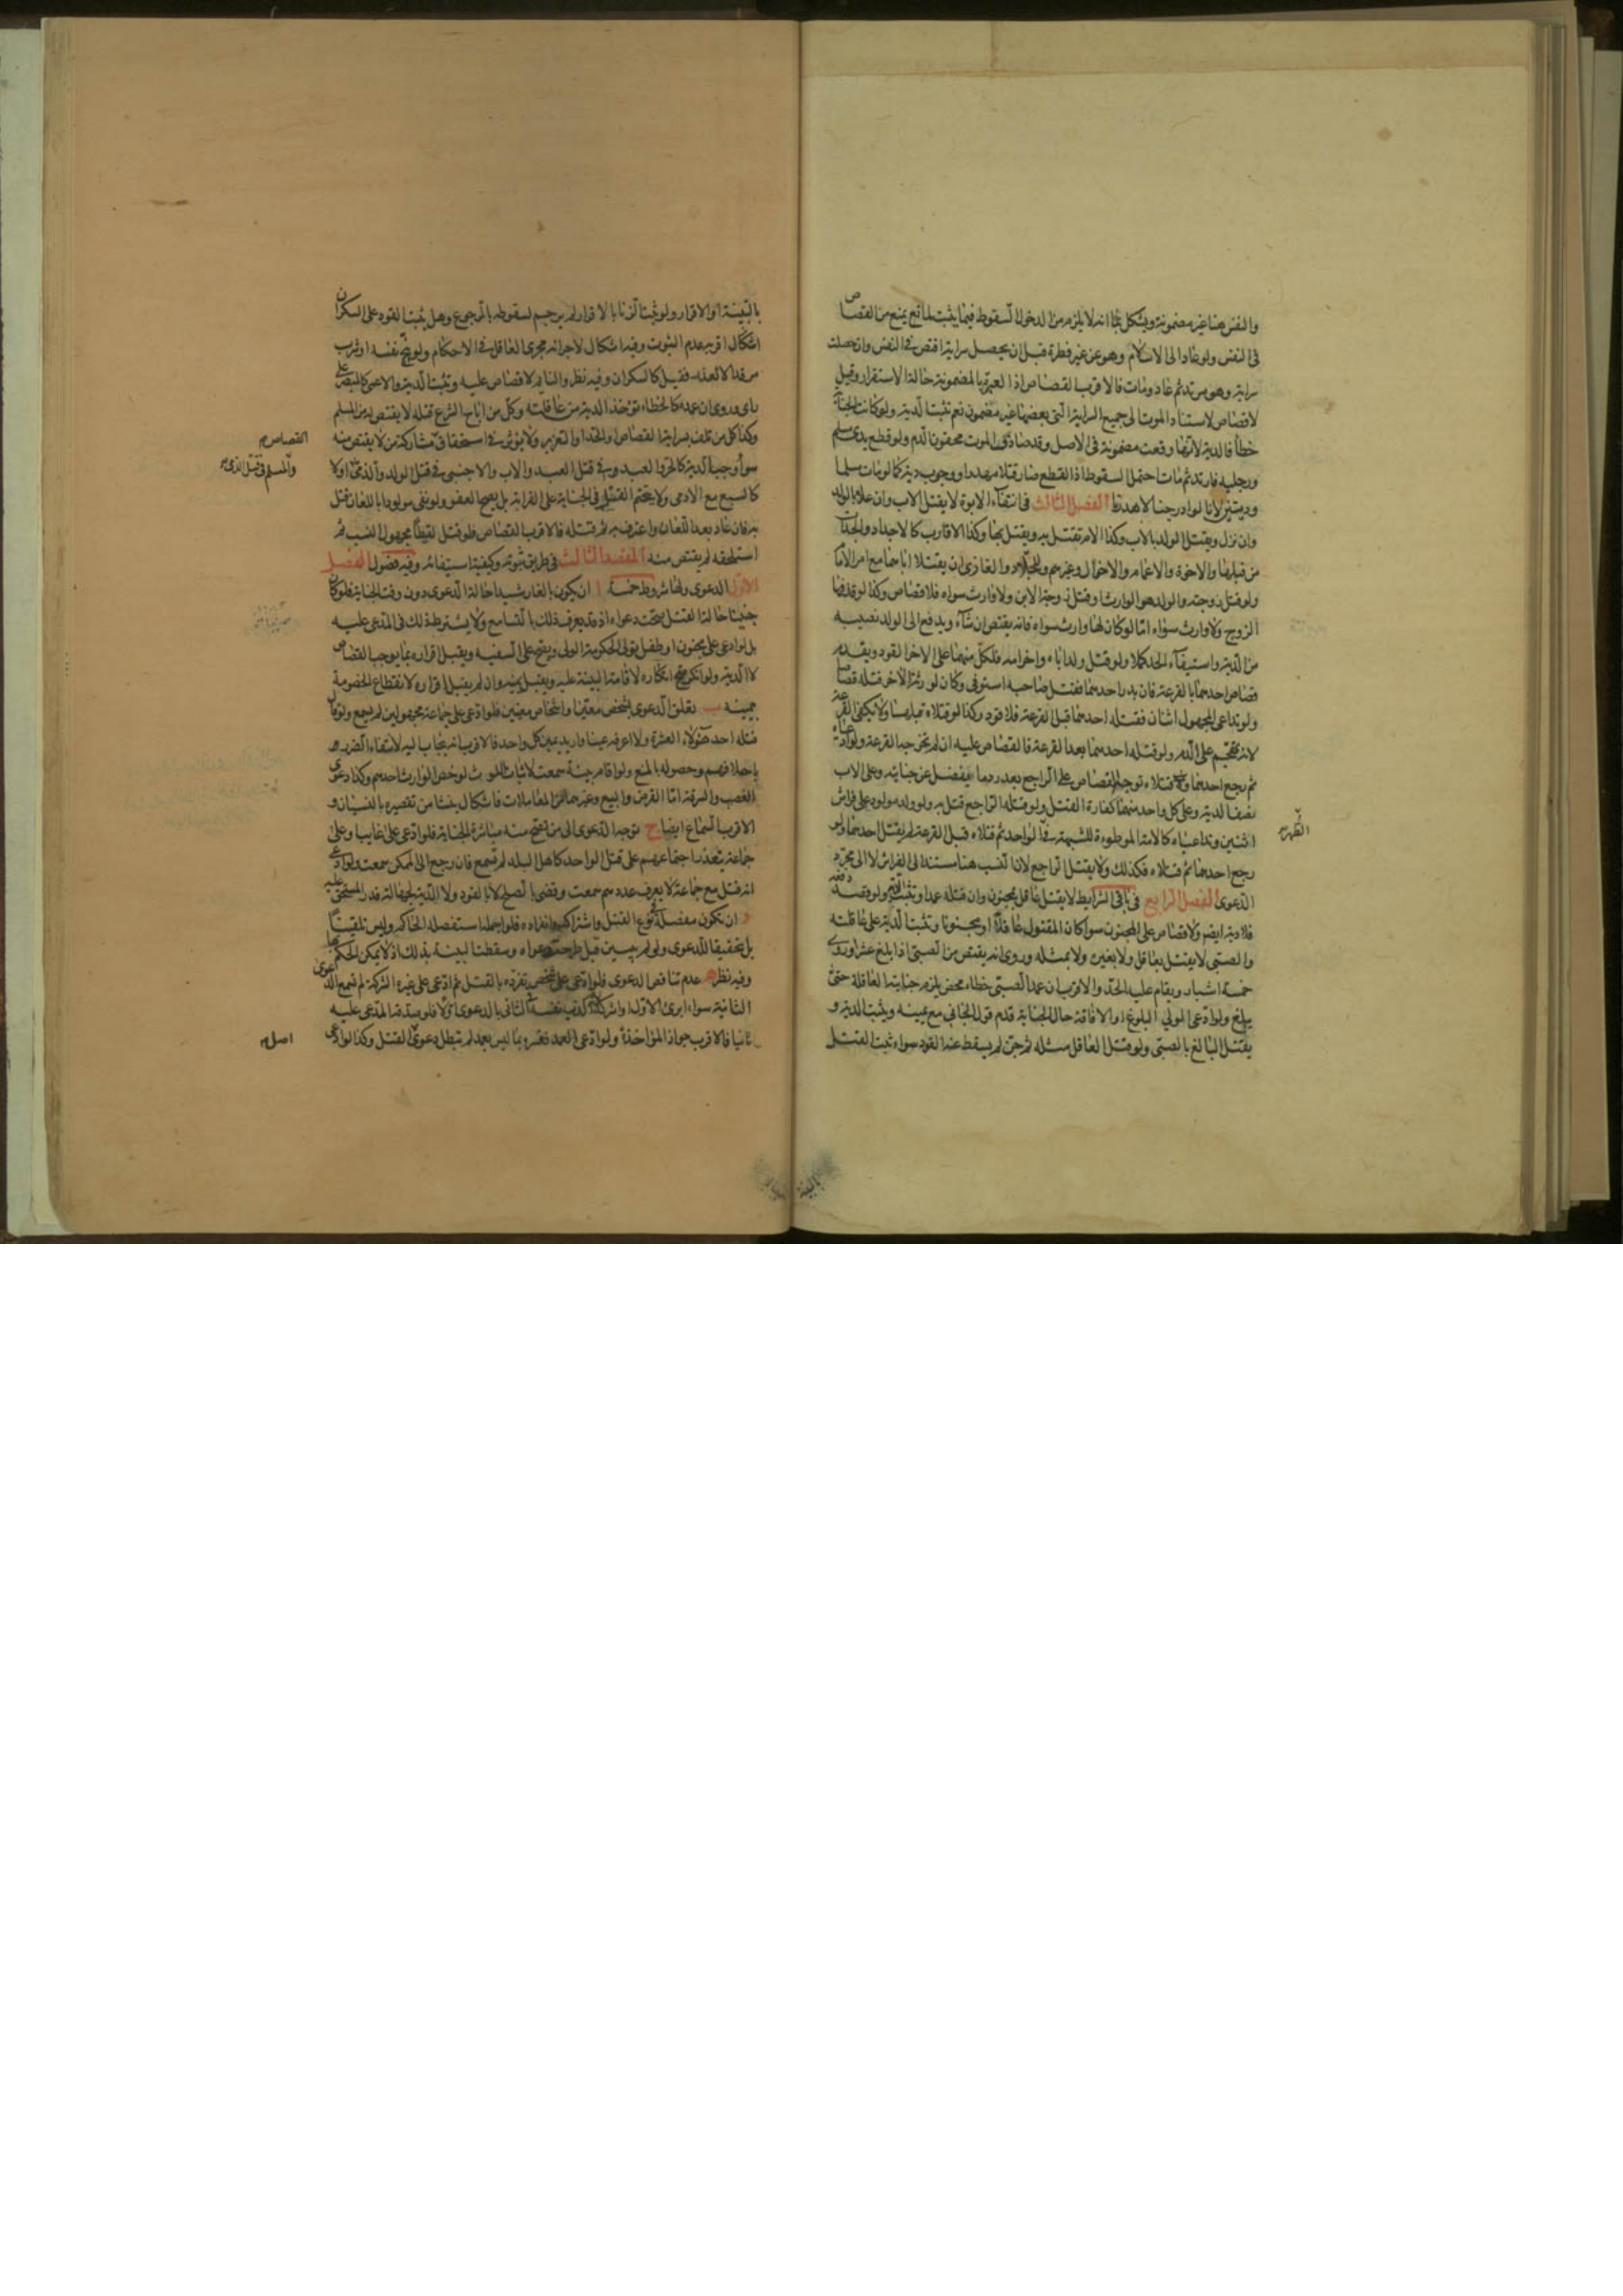 والنفس هنا غير مضمونة ويشكل بما انه لا يلزم من الدخول السقوط فيما يثبت لمانع يمنع من القصاص
في النفس ولو عاد الى الاسلام وهو عن غير فطرة قبل ان يحصل سراية اقتص في النفس وان حصلت
سراية وهو مرتد ثم عاد ومات فالاقرب القصاص اذ العبرة بالمضمونة حالة الاستقرار وقيل
لا قصاص لاستناد الموت الى جميع السراية التي بعضها غير مضمون نعم تثبت الدية ولو كانت الجناية
خطأ فالدية لانها وقعت مضمونة في الاصل وقد صادف الموت محقون الدم ولو قطع يدي مسلم
ورجليه فارتد ثم مات احتمل السقوط اذ القطع صار قتلا مهدرا ووجوب دية كما لو مات مسلما
وديتين لانا لو ادرجنا لاهدرنا الفصل الثالث في انتفاء الابوة لا يقتل الاب وان علا بالولد
وان نزل ويقتل الولد بالاب وكذا الام تقتل به ويقتل بها وكذا الاقارب كالاجداد والجدات
من قبلها والاخوة والاعمام والاخوال وغيرهم وللجلاد والغازي ان يقتلا اباهما مع امر الامام
ولو قتل زوجته والولد هو الوارث او قتل زوجة الابن ولا وارث سواه فلا قصاص وكذا لو قذفها
الزوج ولا وارث سواه اما لو كان لها وارث سواه فانه يقتص ان شاء ويدفع الى الولد نصيبه
من الدية واستيفاء الحد كملا ولو قتل ولد اباه واخر امه فلكل منهما على الاخر القود ويقدم
قصاص احدهما بالقرعة فان بدر احدهما فقتل صاحبه استوفى وكان لورثة الاخر قتله قصاصا
ولو تداعى المجهول اثنان فقتله احدهما قبل القرعة فلا قود وكذا لو قتلاه قبلها ولا يكفي القرعة
لانه تهجم على الدم ولو قتله احدهما بعد القرعة فالقصاص عليه ان لم تخرجه القرعة ولو ادعياه
ثم رجع احدهما وقتلاه توجه القصاص على الراجع بعد رد ما يفضل عن جنايته وعلى الاب
نصف الدية وعلى كل واحد منهما كفارة القتل ولو قتله الراجع قتل به ولو ولد مولود على فراش
اثنين وتداعياه كالامة الموطوءة للشبهة في الواحد ثم قتلاه قبل القرعة لم يقتل احدهما ولو
رجع احدهما ثم قتلاه فكذلك ولا يقتل الراجع لان النسب هنا مستند الى الفراش لا الى مجرد
الدعوى الفصل الرابع في باقي الشرايط لا يقتل عاقل بمجنون وان قتله عمدا وتثبت الدية ولو قصد دفعه
فلا دية ايضا ولا قصاص على المجنون سواء كان المقتول عاقلا او مجنونا وتثبت الدية على عاقلته
والصبي لا يقتل بعاقل ولا بغيره ولا بمثله وروي انه يقتص من الصبي اذا بلغ عشرا وروي
خمسة اشبار ويقام عليه الحد والاقرب ان عمد الصبي خطاء محض يلزم جنايته العاقلة حتى
يبلغ ولو ادعى الولي البلوغ او الافاقة حال الجناية قدم قول الجاني مع يمينه ويثبت الدية و
يقتل البالغ بالصبي ولو قتل العاقل مثله ثم جن لم يسقط عنه القود سواء ثبت القتل
الظهر
بالبينة
بالبينة او الاقرار ولو ثبت الزنا بالاقرار لم يرجم لسقوطه بالرجوع وهل يثبت القود على السكران
اشكال اقربه عدم الثبوت وفيه اشكال لاجرائه مجرى العاقل في الاحكام ولو بنج نفسه او شرب
مرقدا لا لعذر فقيل كالسكران وفيه نظر والنايم لا قصاص عليه وتثبت الدية والاعمى كالمبصر على
راى وروي ان عمده كالخطاء تؤخذ الدية من عاقلته وكل من اباح الشرع قتله لا يقتص له من المسلم
وكذا كل من تلف بسراية القصاص او الحد او التعزير ولا يؤثر في استحقاق مشاركة من لا يقتص منه
سواء وجبت الدية كالحر والعبد في قتل العبد والاب والاجنبي في قتل الولد والذمي او لا
كالسبع مع الادمي ولا يتحتم القتل في الجناية على القرابة بل يصح العفو ولو نفى مولودا باللعان قتل
به فان عاد بعد اللعان واعترف به ثم قتله فالاقرب القصاص فلو قتل لقيطا مجهول النسب ثم
استلحقه لم يقتص منه المقصد الثالث في طريق ثبوته وكيفية استيفائه وفيه فصول الفصل
الاول الدعوى ولها شروط خمسة ا ان يكون بالغا رشيدا حالة الدعوى دون وقت الجناية فلو كان
جنينا حالة القتل صحت دعواه اذ قد يعرف ذلك بالتسامع ولا يشترط ذلك في المدعى عليه
بل لو ادعى على مجنون او طفل تولى الحكومة الولي ويصح على السفيه ويقبل اقراره بما يوجب القصاص
لا الدية ولو انكر صح انكاره لاقامة البينة عليه ويقبل يمينه وان لم يقبل اقراره لانقطاع الخصومة
بيمينه ب تعلق الدعوى بشخص معين او اشخاص معينين فلو ادعى على جماعة مجهولين لم تسمع ولو قال
قتله احد هؤلاء العشرة ولا اعرفه عينا واريد يمين كل واحد فالاقرب انه يجاب اليه لانتفاء الضرر
باحلافهم وحصوله بالمنع ولو اقام بينة سمعت لاثبات اللوث لو خص الوارث احدهم وكذا دعوى
الغصب والسرقة اما القرض والبيع وغيرهما من المعاملات فاشكال ينشا من تقصيره بالنسيان و
الاقرب السماع ايضا ج توجه الدعوى الى من تصح منه مباشرة الجناية فلو ادعى على غايب او على
جماعة يتعذر اجتماعهم على قتل الواحد كاهل البلد لم تسمع فان رجع الى الممكن سمعت ولو ادعى
انه قتل مع جماعة لا يعرف عددهم سمعت وقضى بالصلح لا بالقود ولا الدية لجهالة قدر المستحق عليه
د ان تكون مفصلة في نوع القتل واشتراكه وانفراده فلو اجمله استفصله الحاكم وليس تلقينا
بل تحقيقا للدعوى ولو لم يبين قيل طرحت دعواه وسقطت البينة بذلك اذ لا يمكن الحكم بها
وفيه نظر ه عدم تناقض الدعوى فلو ادعى على شخص تفرده بالقتل ثم ادعى على غيره الشركة لم تسمع الدعوى
الثانية سواء ابرئ الاول او اشركه لانه كذب نفسه في الثاني بالدعوى اولا فلو صدقه المدعى عليه
ثانيا فالاقرب جواز المؤاخذة ولو ادعى العمد ففسره بما ليس بعمد لم تبطل دعوى القتل وكذا لو ادعى
القصاص
والمسلم في قتل الذمي
اصل